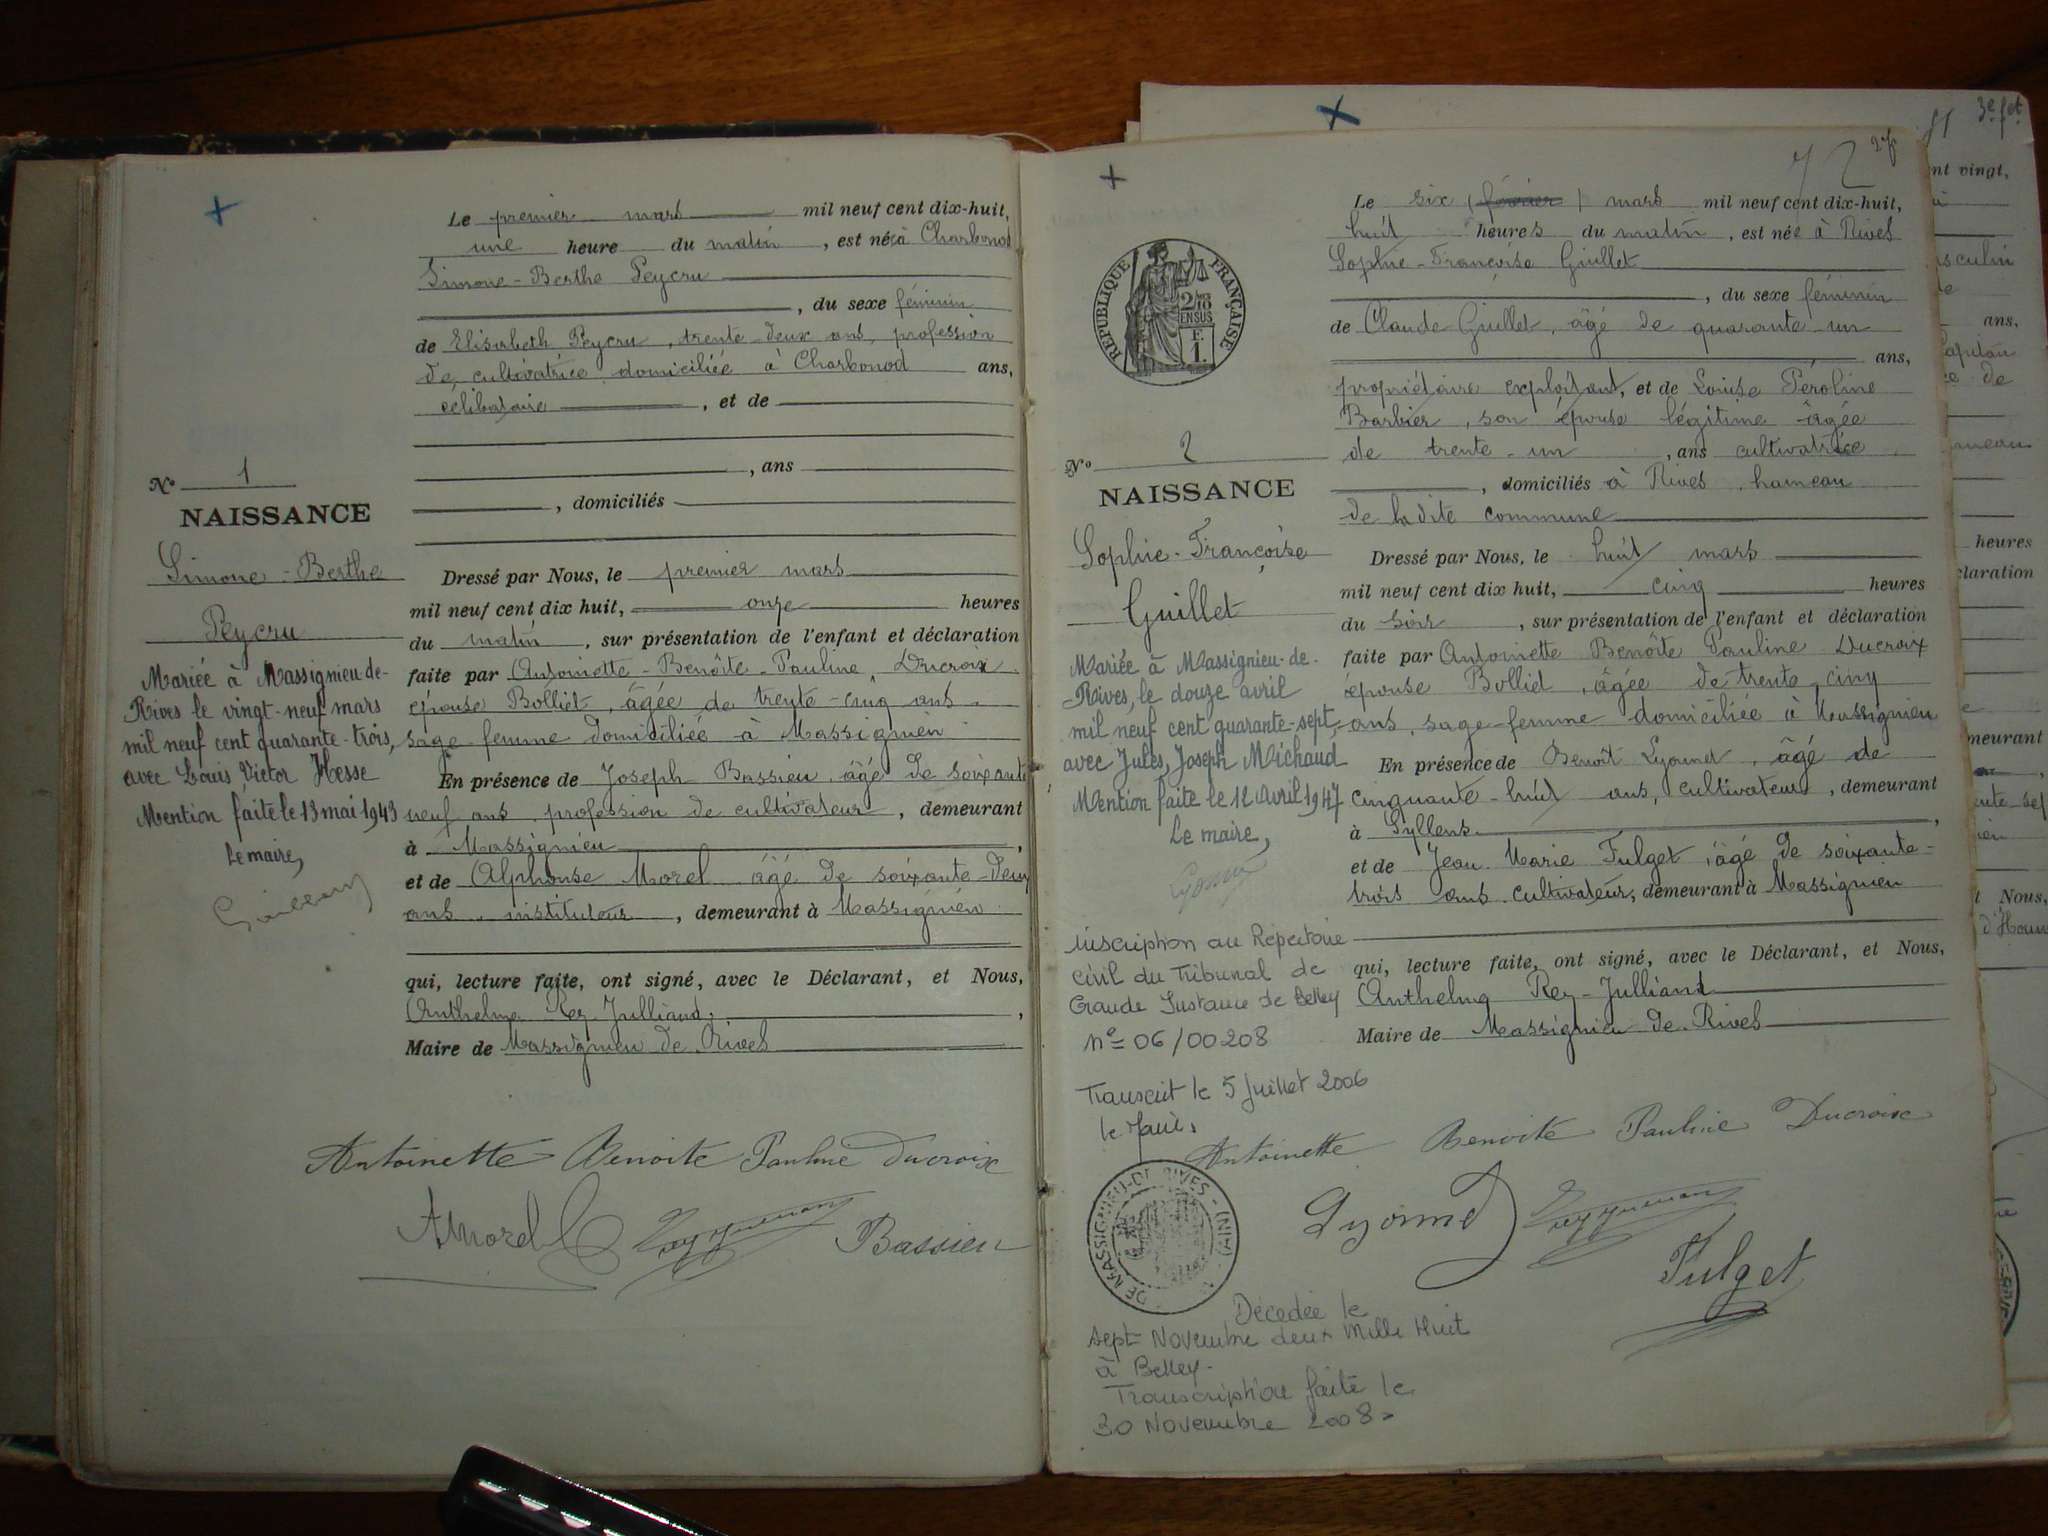 Le premier mars mil neuf cent dix-huit,
une heure du matin, est née à Charbonod
Simone-Berthe Peycru
, du sexe féminin
de Elisabeth Peycru, trente-deux ans, profession
de cultivatrice domiciliée à Charbonod ans,
célibataire, et de
, ans
, domiciliés
No 1
NAISSANCE
Simone-Berthe
Peycru
Mariée à Massignieu-de-
Rives le vingt-neuf mars
mil neuf cent quarante-trois,
avec Louis Victor Hesse
Mention faite le 13 mai 1943
Le maire,
Dressé par Nous, le premier mars
mil neuf cent dix huit, onze heures
du matin, sur présentation de l'enfant et déclaration
faite par Antoinette-Benôite-Pauline Ducroix
épouse Bolliet, âgée de trente-cinq ans
sage-femme domiciliée à Massignieu
En présence de Joseph Bassieu, âgé de soixante
neuf ans, profession de cultivateur, demeurant
à Massignieu,
et de Alphonse Morel âgé de soixante-deux
ans, instituteur, demeurant à Massignieu
qui, lecture faite, ont signé, avec le Déclarant, et Nous,
Anthelme Rey-Julliand,
Maire de Massignieu de Rives
Antoinette Benoite Pauline Ducroix
AMorel
Bassieu
3e fet
27
2
Le six (février) mars mil neuf cent dix-huit,
huit heures du matin, est née à Rives
Sophie-Françoise Guillet
, du sexe féminin
de Claude Guillet, âgé de quarante-un
ans,
propriétaire exploitant, et de Louise Péroline
Barbier, son épouse légitime âgée
de trente-un, ans cultivatrice
, domiciliés à Rives, hameau
de la dite commune
RÉPUBLIQUE FRANÇAISE
No 2
NAISSANCE
Sophie-Françoise
Guillet
Mariée à Massignieu-de-
Rives, le douze avril
mil neuf cent quarante-sept,
avec Jules, Joseph Michaud
Mention faite le 12 Avril 1947
Le maire,
Inscription au Répertoire
Civil du Tribunal de
Grande Instance de Belley
n° 06/00208
Transcrit le 5 Juillet 2006
le Maire,
DE MASSIGNIEU-DE RIVES - (AIN)
Décédée le
sept Novembre deux Mille Huit
à Belley.
Transcription faite le
30 Novembre 2008.
Dressé par Nous, le huit mars
mil neuf cent dix huit, cinq heures
du soir, sur présentation de l'enfant et déclaration
faite par Antoinette Benôite Pauline Ducroix
épouse Bolliet, âgée de trente cinq
ans, sage-femme domiciliée à Massignieu
En présence de Benoît Lyonnet, âgé de
cinquante-huit ans, cultivateur, demeurant
à Syllens,
et de Jean Marie Fulget, âgé de soixante-
trois ans cultivateur, demeurant à Massignieu
qui, lecture faite, ont signé, avec le Déclarant, et Nous,
Anthelme Rey-Julliand
Maire de Massignieu de Rives
Antoinette Benoite Pauline Ducroix
Fulget
nt vingt,
ans,
heures
laration
meurant
t Nous,